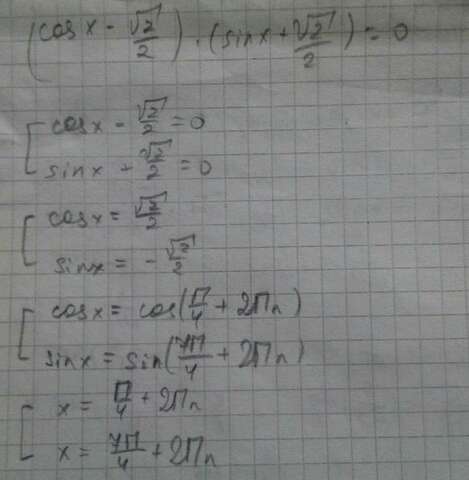 (cos x - √2/2) · (sin x + √2/2) = 0
[ cos x - √2/2 = 0
sin x + √2/2 = 0
[ cos x = √2/2
sin x = - √2/2
[ cos x = cos(π/4 + 2πn)
sin x = sin(7π/4 + 2πn)
[ x = π/4 + 2πn
x = 7π/4 + 2πn